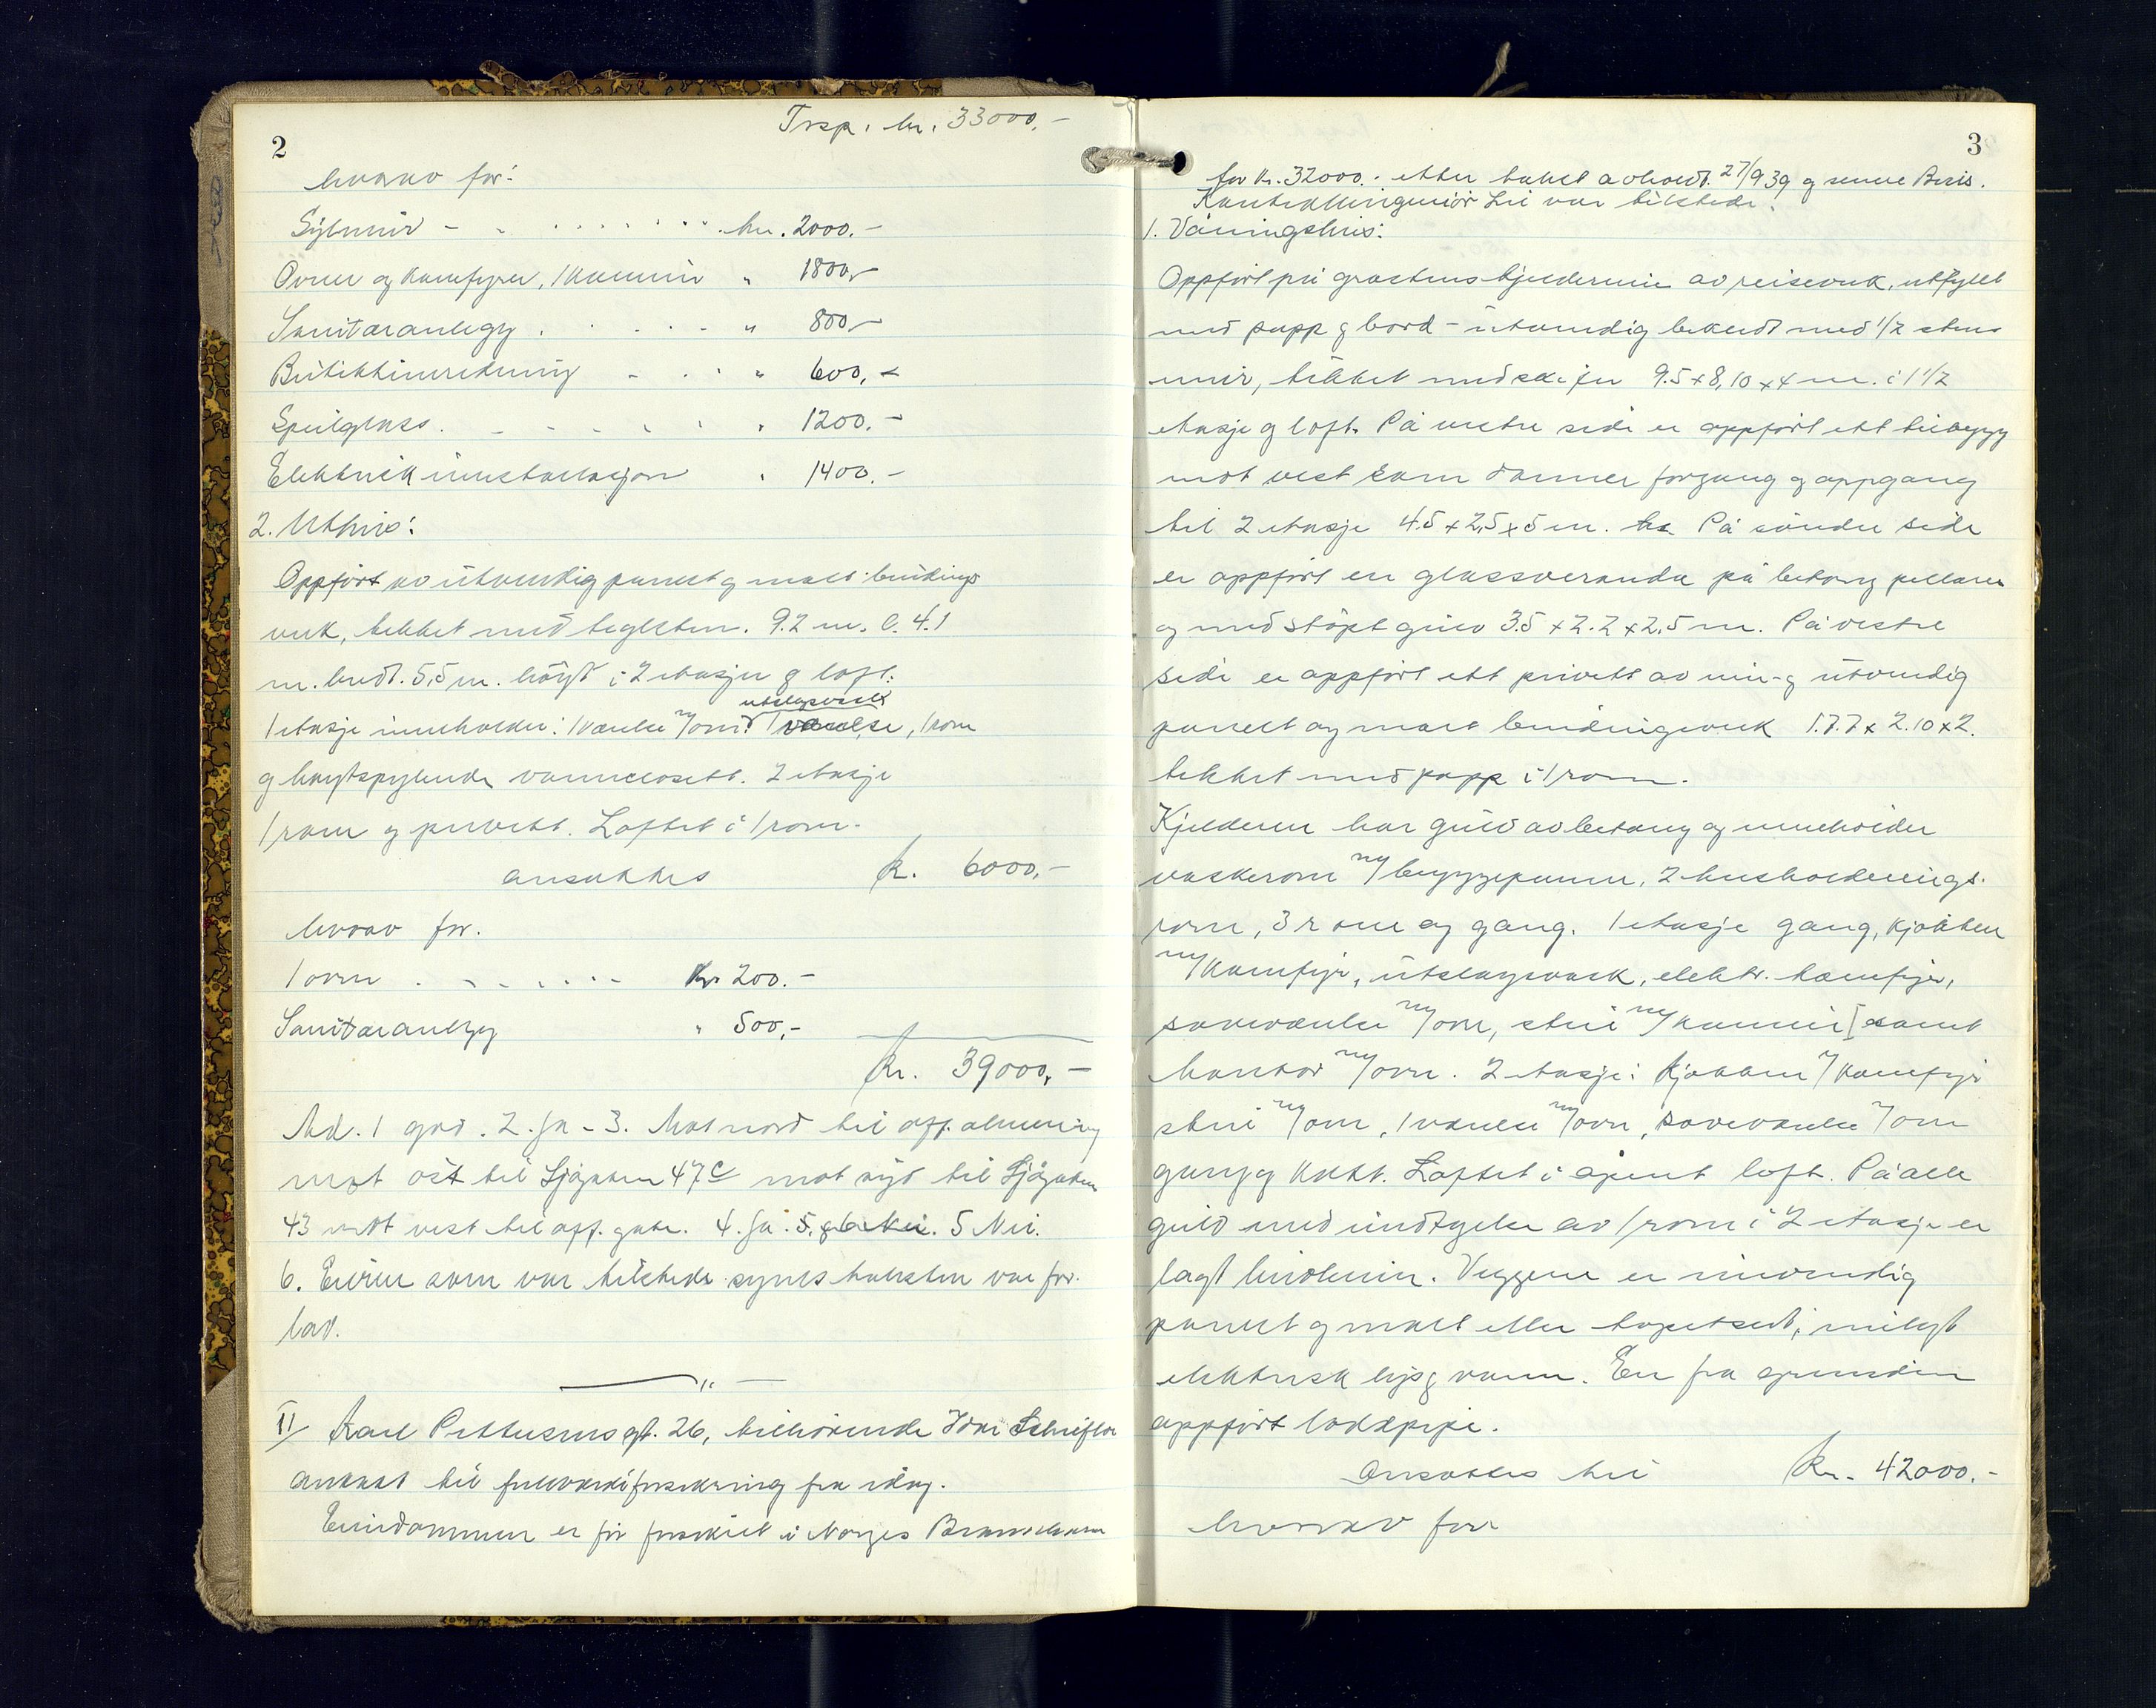 2
Trsp. kr. 33000.-
hvorav for:
Sylmur - - . . . . . . . kr. 2000.-
Ovner og komfyrer, 1 kamin " 1800,-
Sanitæranlegg . . . . - " 800,-
Butikkinnredning - . . " 600,-
Speilglass. - - - - . . 1200.-
Elektrisk innstallasjon . 1400.-
2. Uthus:
Oppført av utvendig panelt og malt bindings
verk, tekket med teglsten. 9.2 m. l. 4.1
m. bredt. 5,5 m. høyt i 2 etasjer og loft.
utslagsvask
1 etasje inneholder: 1 værelse m/ovn 1 værelse, 1 rom
og høytspylende vannclosett. 2 etasje
1 rom og privett. Loftet i 1 rom.
ansattes kr. 6000,-
hvorav for.
1 ovn . - - . . . - kr 200.-
Sanitæranlegg " 500,-
Kr. 39000,-
Ad. 1 god. 2. Ja - 3. Mot nord til off. almening
mot øst til Sjøgaten 47c mot syd til Sjøgaten
43 mot vest til off. gate. 4. Ja. 5. 5 Nei.
6. Eieren som var tilstede synes taksten var for
lav.
II/ Karl Pettersens gt. 26, tilhørende
ønskes til fullverdiforsikring fra idag.
Eiendommen er før forsikret i Norges Brannkasse
3
for kr. 32000.- etter takst avholdt 27/9 39 og senere Besis.
Kontrollingeniør Lie var tilstede.
1. Våningshus:
Oppført på gråstens kjeldermur av reisverk, utfyllt
med papp og bord - utvendig bekledt med 1/2 stens
mur, tekket med skifer 9.5 x 8,10 x 4 m. i 1 1/2
etasje og loft. På vestre side er oppført ett tilbygg
mot vest som danner forgang og oppgang
til 2 etasje 4.5 x 2,5 x 5 m. På søndre side
er oppført en glassveranda på betong pellarer
og med støpt gulv 3.5 x 2.2 x 2,5 m. På vestre
side er oppført ett privett av inn- og utvendig
panelt og malt bindingsverk 1.7.7 x 2.10 x 2.
tekket med papp i 1 rom.
Kjelderen har gulv av betong og inneholder
vaskerom m/bryggepanne, 2 husholdnings-
rom, 3 rom og gang. 1 etasje gang, kjøkken
m/komfyr, utslagsvask, elektr. komfyr,
soveværelse m/ovn, stue m/kamin samt
kontor m/ovn. 2 etasje: kjøkken m/komfyr
stue m/ovn, 1 værelse m/ovn, soveværelse m/ovn
gang og kott. Loftet i åpent loft. På alle
gulv med undtagelse av 1 rom i 2 etasje er
lagt linoleum. Veggene er innvendig
panelt og malt eller tapetsert, innlagt
elektrisk lys og vann. En fra grunden
oppført loddpipe.
Ansattes til Kr. 42000.-
hvorav for